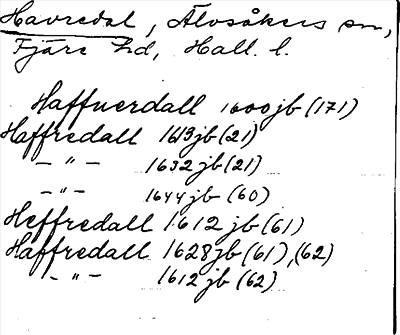 Havredal, Älvsåkers sn,
Fjäre hd, Hall. l.
Haffuerdall 1600 jb (171)
Haffredall 1619 jb (21)
– " – 1632 jb (21)
– " – 1644 jb (60)
Heffredall 1612 jb (61)
Haffredall 1628 jb (61), (62)
– " – 1612 jb (62)